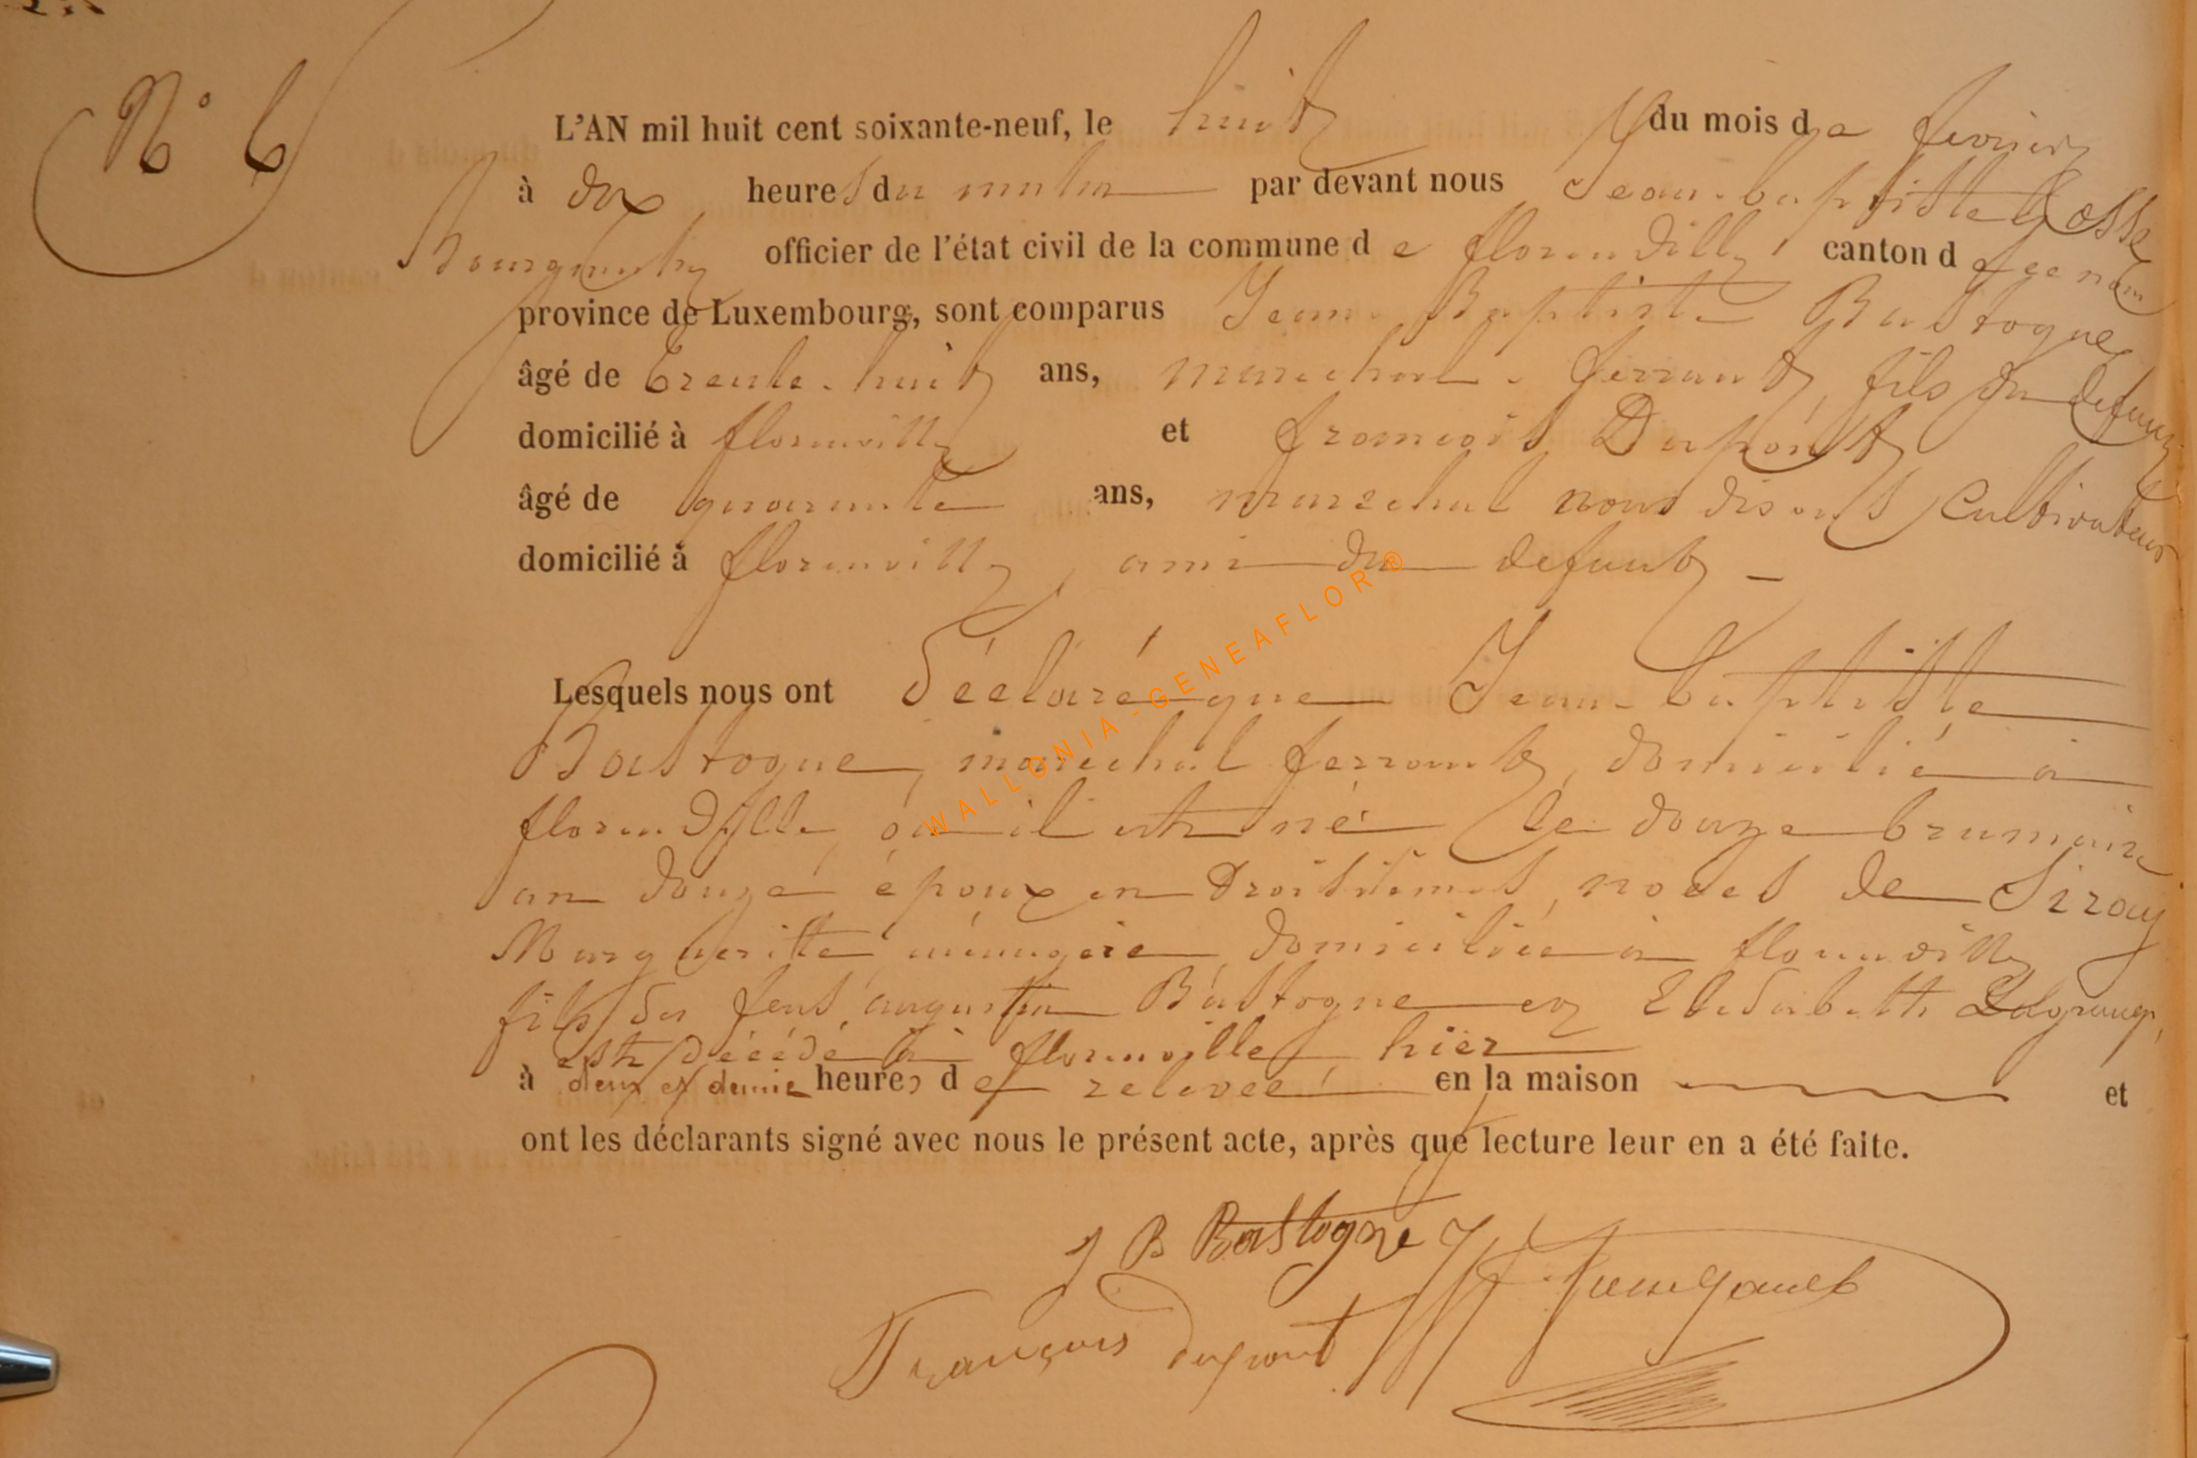 N° 6
L'AN mil huit cent soixante-neuf, le huit du mois de fevrier
à dix heures du matin par devant nous Jean-baptiste Gosse
officier de l'état civil de la commune de florenville canton de
province de Luxembourg, sont comparus Jean Baptiste Bastogne
âgé de trente-huit ans, marechal-ferrant, fils du defunt
domicilié à florenville et françois Dupont
âgé de quarante ans, marechal nous disons cultivateur
domicilié à florenville, ami du defunt
Lesquels nous ont déclaré que Jean-baptiste
Bastogne, marechal ferrant, domicilié à
florenville, où il est né le douze brumaire
an douze époux en troisièmes noces de Siray
Margueritte ménagère domiciliée à florenville
fils des feus augustin Bastogne et Elisabeth
est décédé à florenville, hier
à deux et demie heures de relevée en la maison et
ont les déclarants signé avec nous le présent acte, après que lecture leur en a été faite.
J B Bastogne
François dupont
WALLONIA-GENEAFLOR®